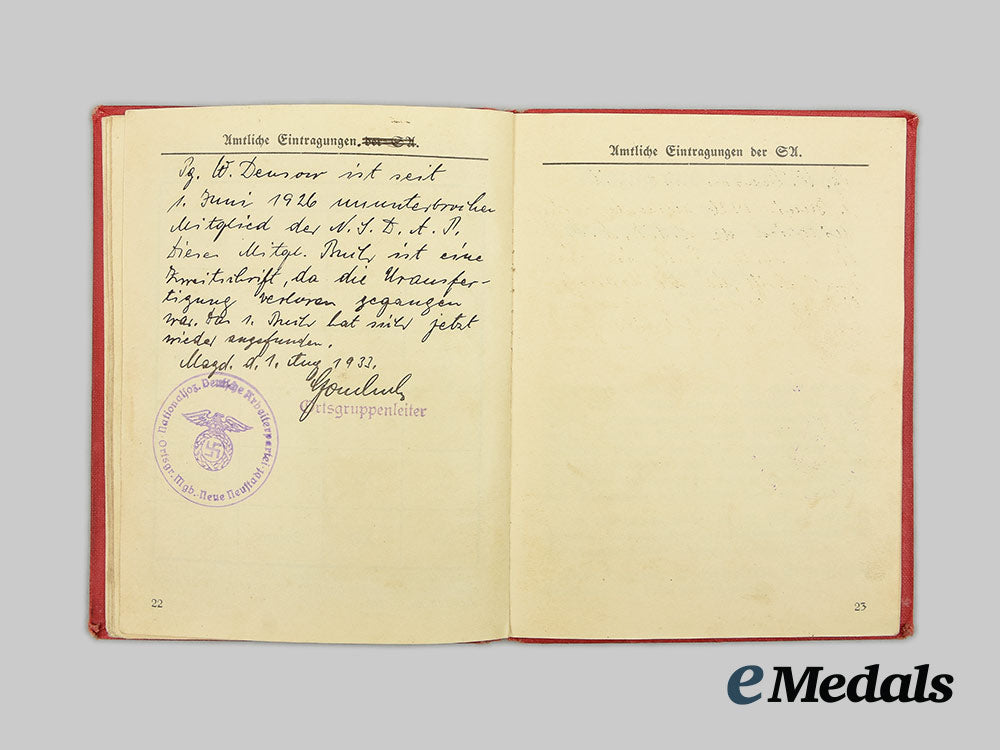 Amtliche Eintragungen. der SA.
Pg. W. Densow ist seit
1. Juni 1926 ununterbrochen
Mitglied der N. S. D. A. P.
Dieses Mitgl. Buch ist eine
Zweitschrift, da die Uransfer-
tigung verloren gegangen
war. Das 1. Buch hat sich jetzt
wieder angefunden.
Magd. d. 1. Aug 1933.
Ortsgruppenleiter
Nationalsoz. Deutsche Arbeiterpartei
Ortsgr. Mgb.-Neue Neustadt
22
Amtliche Eintragungen der SA.
23
eMedals